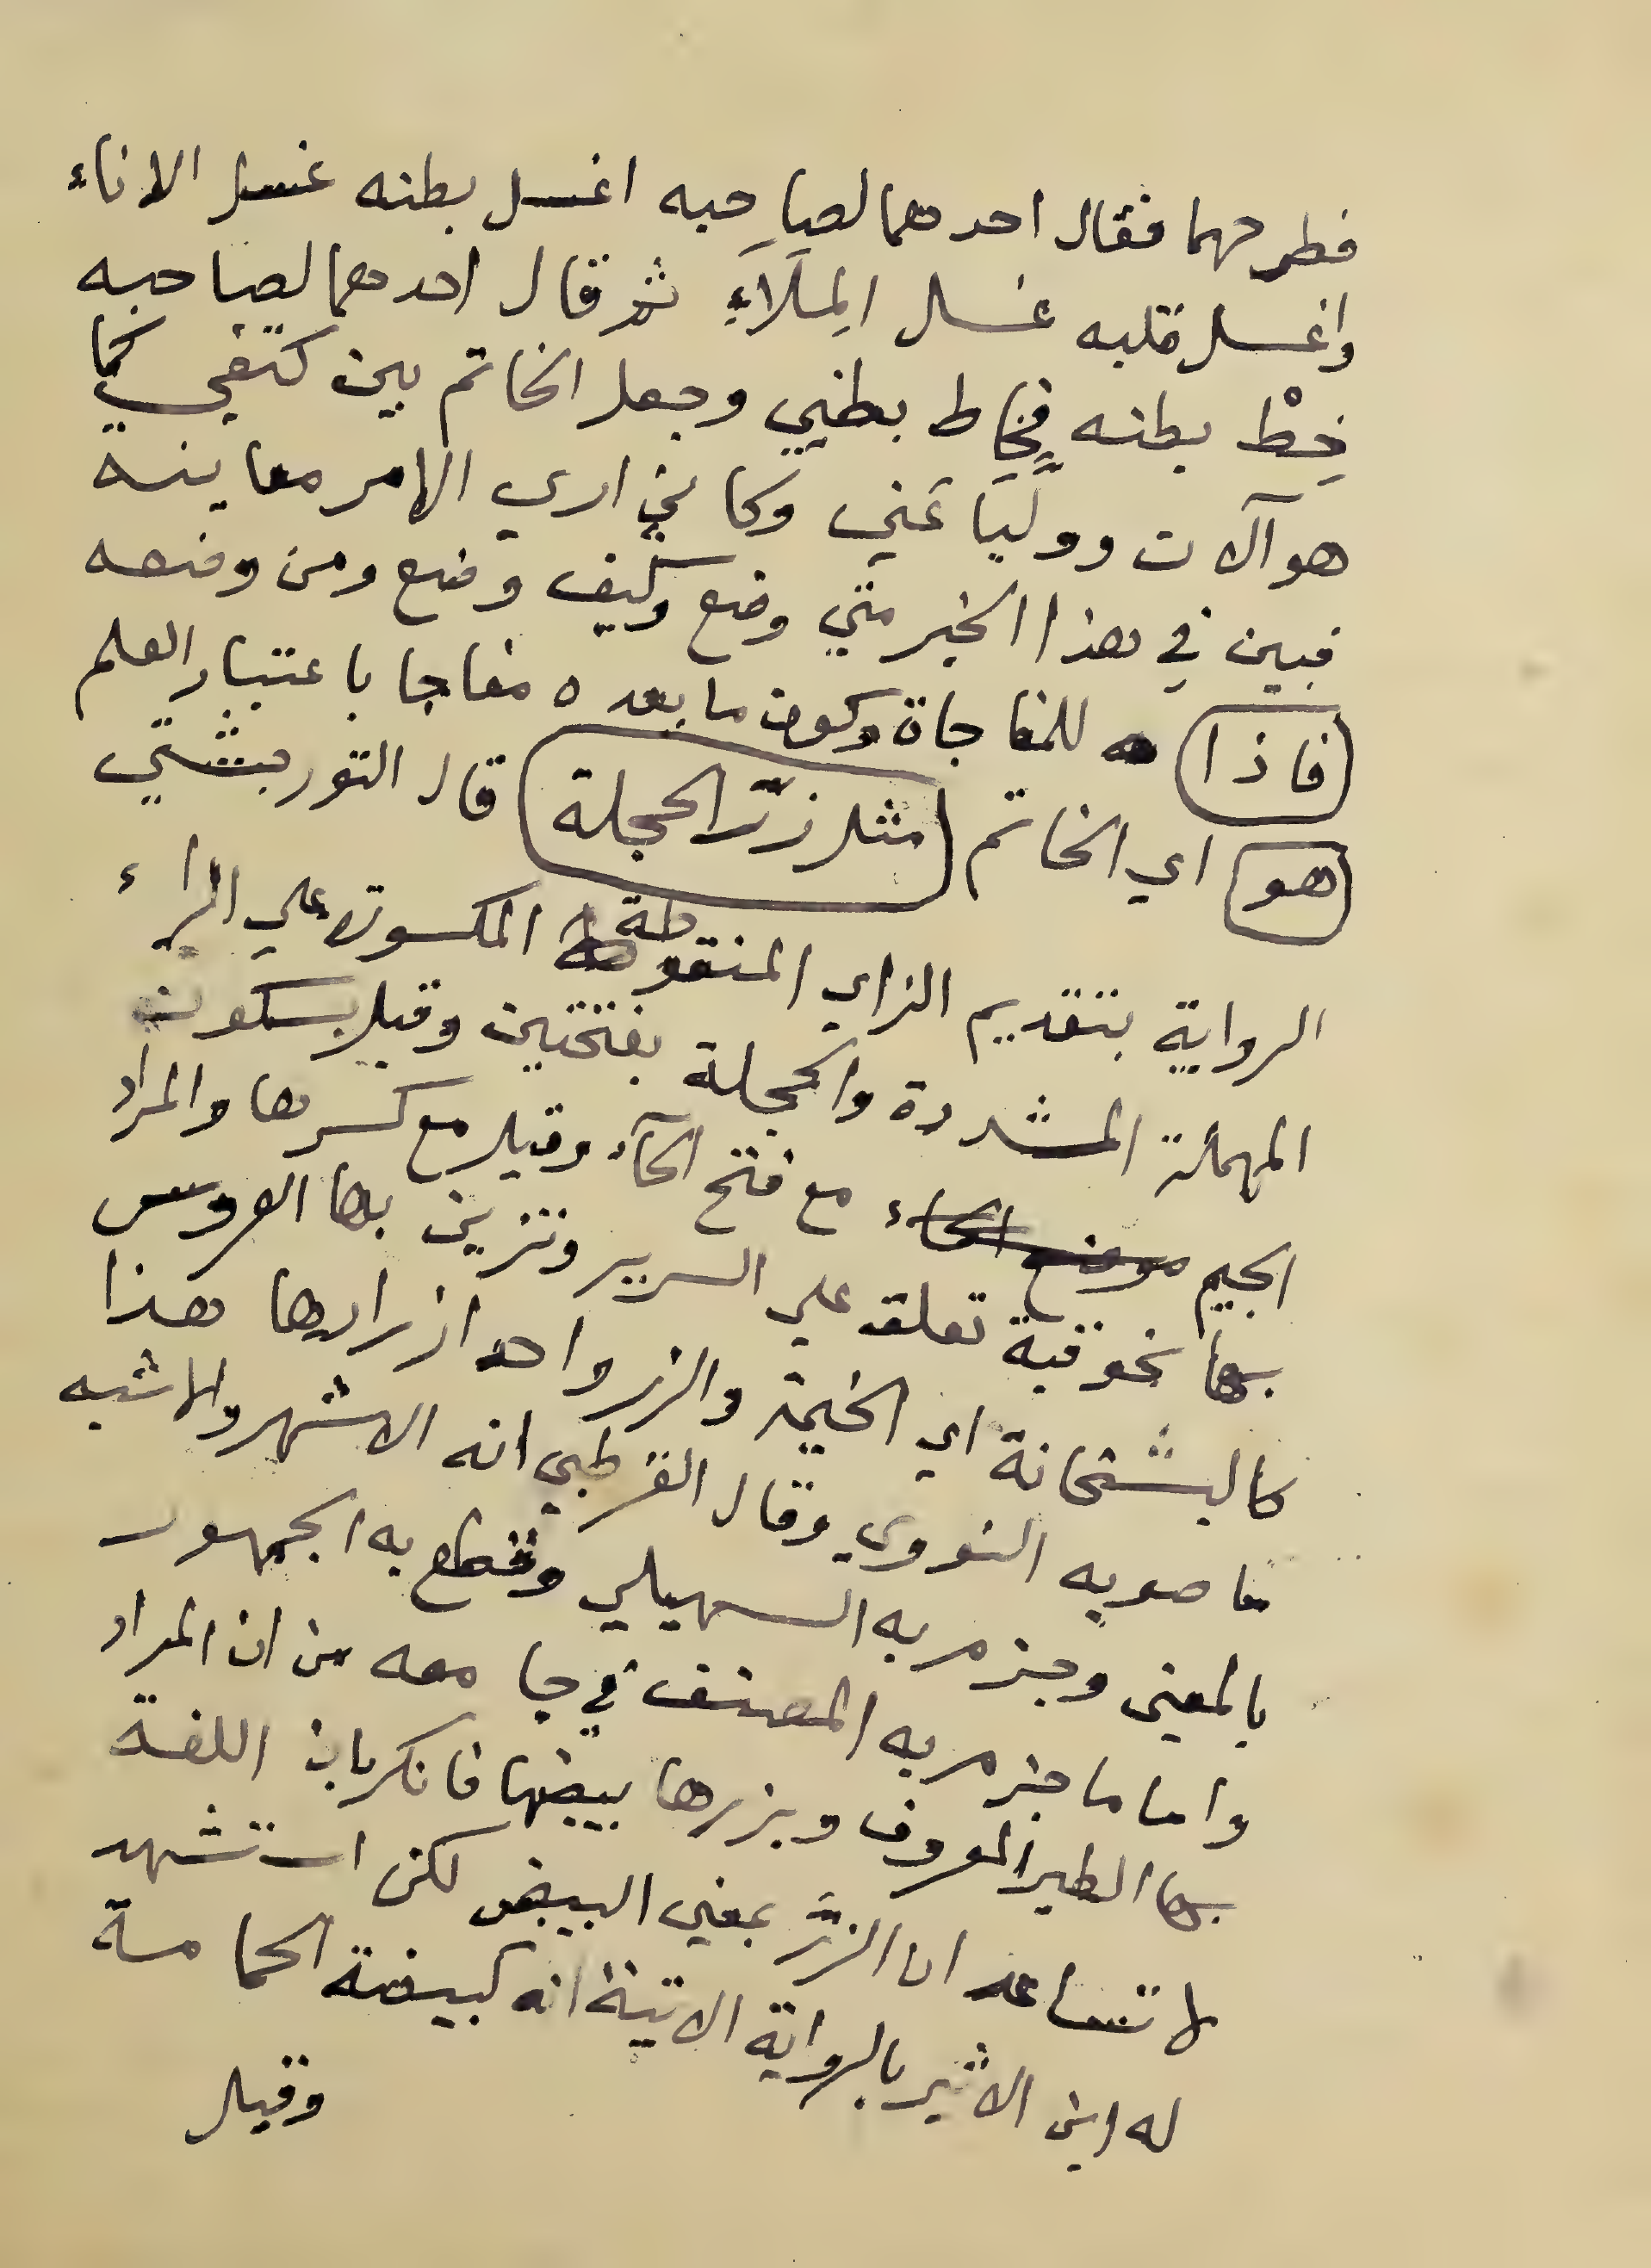 فطرحهما فقال احدهما لصاحبه اغسل بطنه غسل الاناء
واغسل قلبه غسل المِلَاءِ ثم قال احدهما لصاحبه
خِطْ بطنه فخاط بطني وجعل الخاتم بين كتفي كما
هو آلان وولَيَا عَني وكاني اري الامر معاينة
فبين في هذا الخبر متي وضع وكيف وضع ومن وضعه
فاذا للمفاجاة وكون ما بعده مفاجا باعتبار العلم
هو اي الخاتم مثل زرّ الحجلة قال التوربشتي
الرواية بتقديم الزاي المنقوطة المكسورة علي الراء
المهملة المشددة والحجلة بفتحتين وقيل بسكون
الجيم موضع الحاء مع فتح الحآء وقيل مع كسرها والمراد
بها نحو قبة تعلق علي السرير وتزين بها العروس
كالبشخانة اي الخيمة والزر واحد ازرارها هذا
ما صوبه النووي وقال القرطبي انه الاشهر والاشبه
بالمعنى وجزم به السهيلي وقطع به الجمهور
واما ما جزم به المصنف في جامعه من ان المراد
بها الطير المعروف وبزرها بيضها فانكر بان اللغة
لا تساعد ان الزرّ بمعني البيض لكن استشهد
له ابن الاثير بالرواية الاتية انه كبيضة الحمامة
وقيل